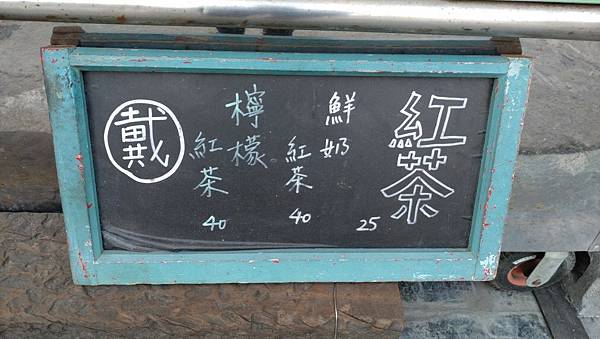 紅茶
25
鮮奶
紅茶
40
檸檬
紅茶
40
戴